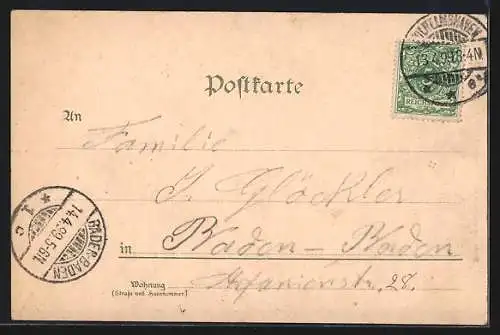 13.4.99
Postkarte
An
Familie
J. Glöckler
in Baden-Baden
Stefanienstr. 28.
Wohnung
(Straße und Hausnummer)
BADEN-BADEN
14.4.99.5-6N.
1
c